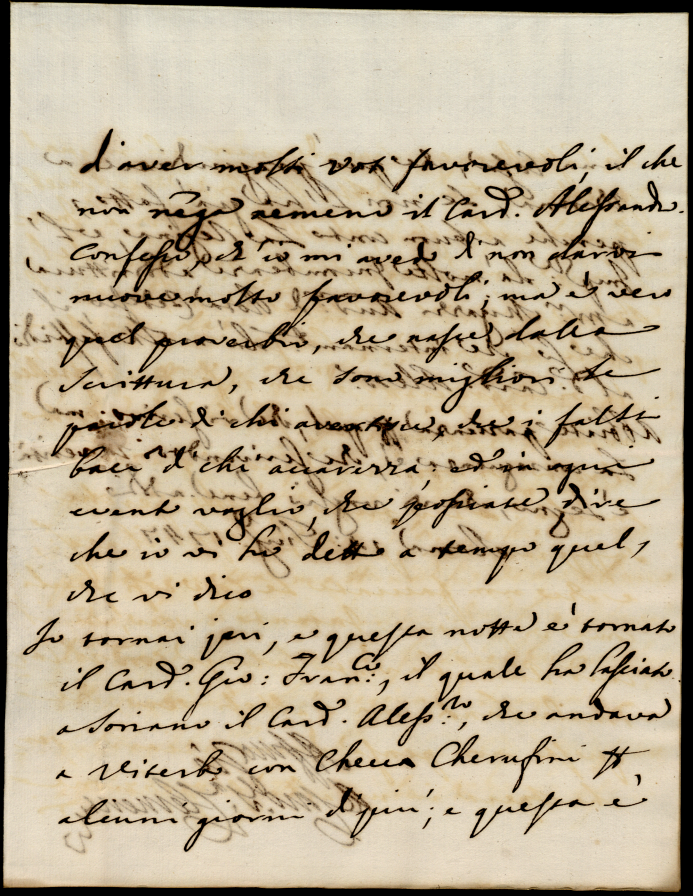 d'aver molti voti favorevoli, il che
non niega nemeno il Card. Alessandro.
Confesso, ch'io mi avedo di non darvi
nuove molto favorevoli; ma è vero
quel proverbio, che nasce dalla
Scrittura, che sono migliori le
di chi avertisce, che i falsi
baci di chi accarezza, ed in ogni
evento voglio, che possiate dire
che io vi ho detto a tempo quel,
che vi dico
Io tornai jeri, e questa notte è tornato
il Card. Gio: Fran.co, il quale ha lasciato
a Soriano il Card. Aless.ro, che andava
a Viterbo con Checca Cherufini
alcuni giorni di più; e questa è